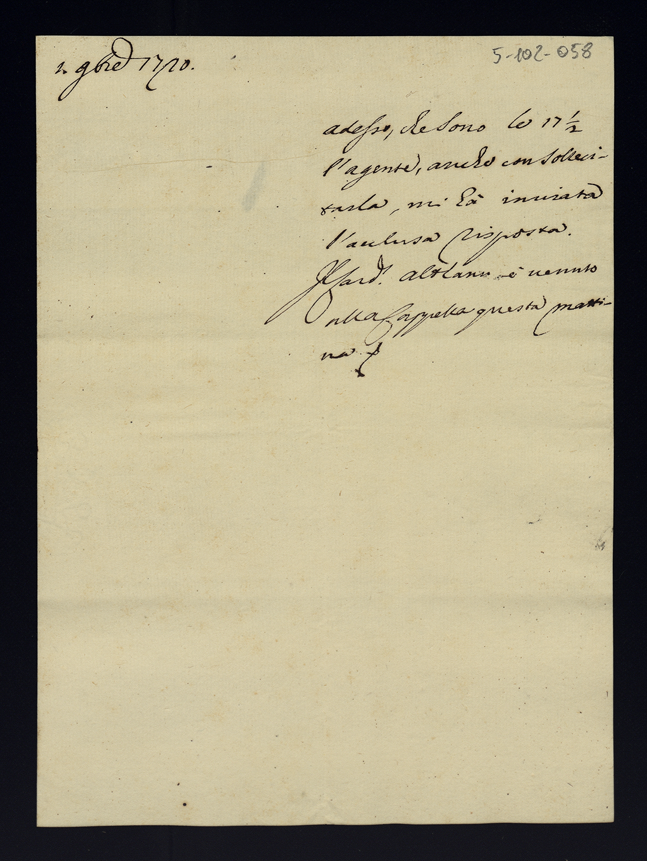 2. 9bre 1720.
5-102-058
adesso, che sono le 17 1/2
l'agente, anche con solleci-
tarla, mi hà inviata
l'aclusa risposta.
Il Card.l è venuto
alla Cappella questa matti-
na